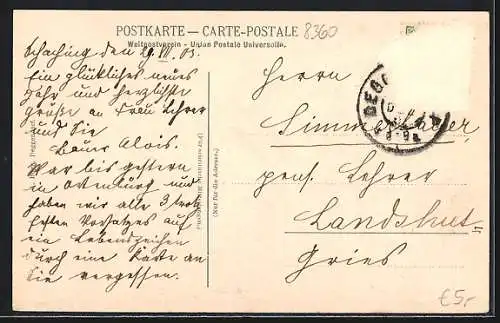 POSTKARTE — CARTE-POSTALE
8360
Weltpostverein - Union Postale Universelle.
Schaching den 29.XII.05.
Ein glückliches neues
Jahr und herzlichste
Grüße an Frau Lehrer
und Sie
Bauer Alois.
War bis gestern
in Ortenburg und
haben wir alle 3 trotz
festen Vorsatzes auf
ein Lebenszeichen
durch eine Karte an
Sie vergessen.
(Nur für die Adresse.)
Herrn
DEGG
pens. Lehrer
Landshut
Gries
£5,-